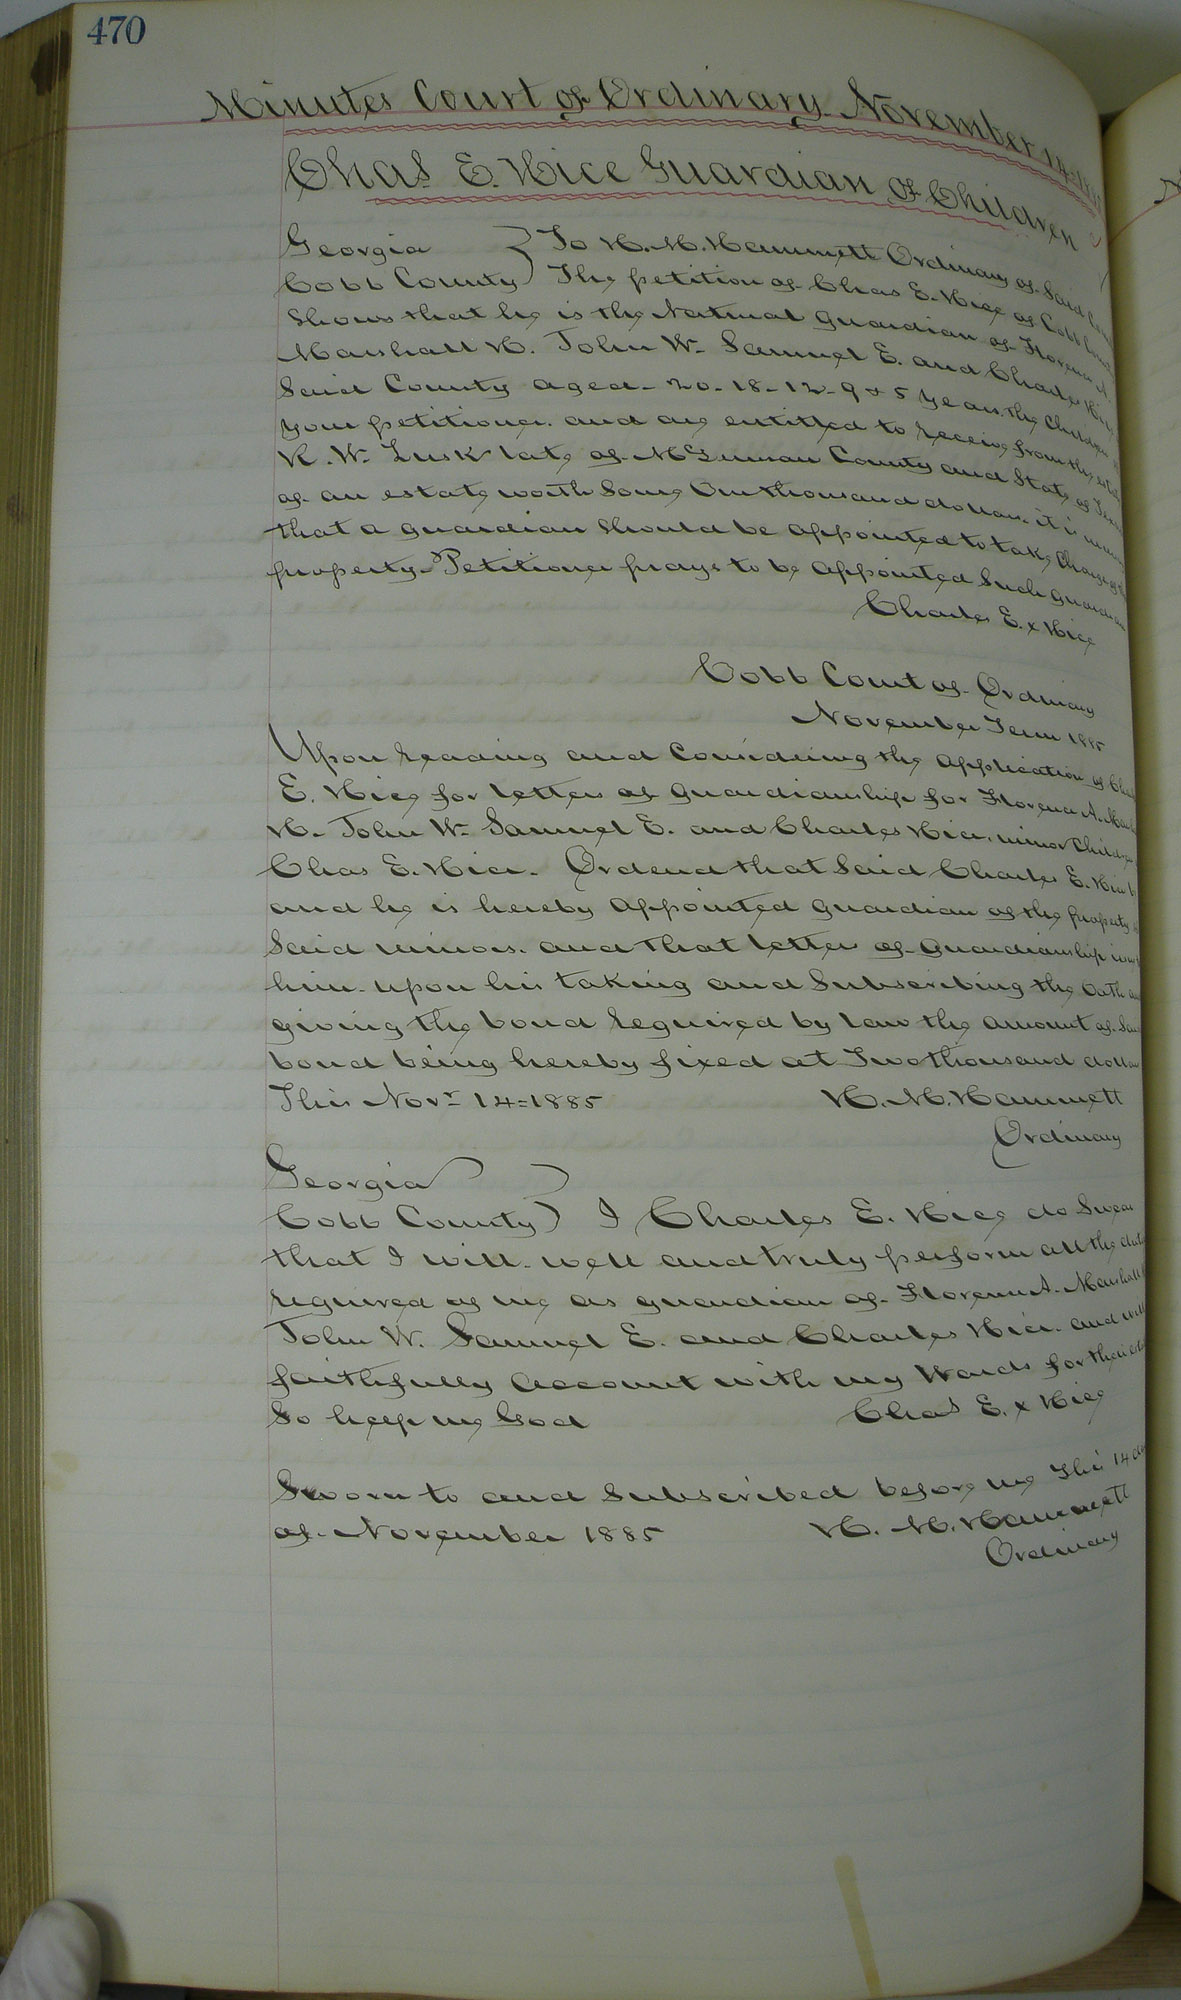 470
Minutes Court of Ordinary November 14=1885
Chas E. Hice Guardian of Children
Georgia } To H. M. Hammett Ordinary of Said
Cobb County } The petition of Chas E. Hice of Cobb County
Shows that he is the Natural guardian of Florence A.
Marshall H. John W. Samuel E. and Charles Hice
Said County aged 20-18-12-9 & 5 years, the Children
your petitioner. and are entitled to receive from the estate
R. W. Lusk late of County and State of
of an estate worth Some One thousand dollars. it is
that a guardian should be appointed to take Charge of
property. Petitioner prays to be appointed Such guardian
Charles E. x Hice
Cobb Court of Ordinary
November Term 1885
Upon reading and Considering the application of
E. Hice for letters of guardianship for Florence A.
H. John W. Samuel E. and Charles Hice, minor Children
Chas E. Hice. Ordered that Said Charles E. Hice
and he is hereby appointed guardian of the property
Said minors. and that letters of guardianship
him upon his taking and Subscribing the Oath
giving the bond required by law the amount of
bond being hereby fixed at Two thousand dollars
This Novr 14=1885 H. M. Hammett
Ordinary
Georgia }
Cobb County } I Charles E. Hice do Swear
that I will well and truly perform all the
required of me as guardian of Florence A. Marshall
John W. Samuel E. and Charles Hice. and will
faithfully account with my Wards for their
So help me God Chas E. x Hice
Sworn to and Subscribed before me This 14
of November 1885 H. M. Hammett
Ordinary